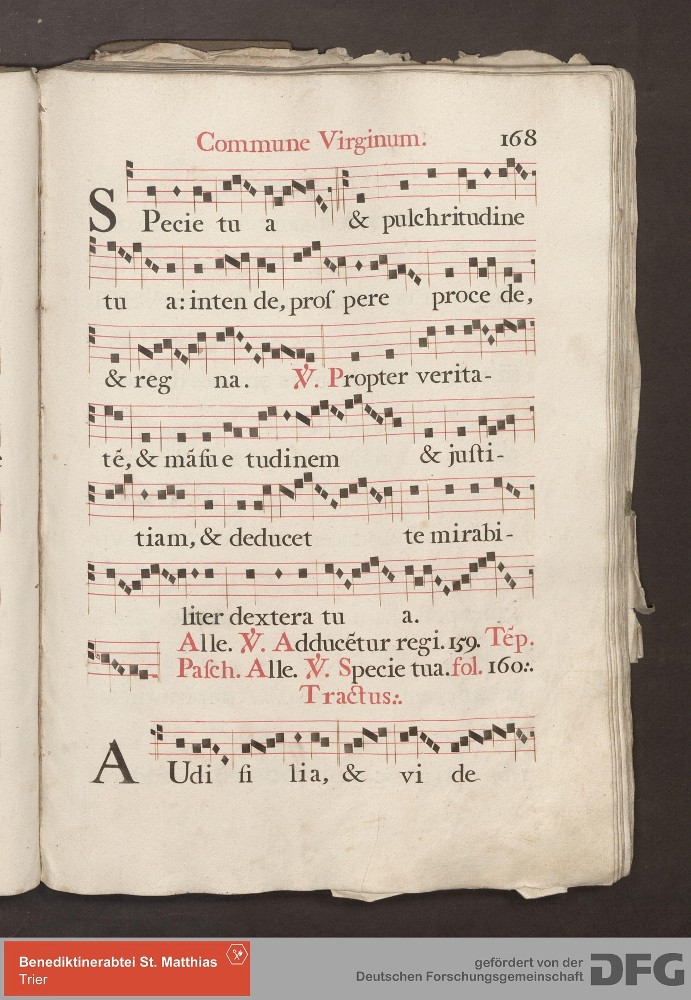 Commune Virginum. 168
SPecie tu a & pulchritudine
tu a: inten de, proſ pere proce de,
& reg na. ℣. Propter verita-
tē, & māſu e tudinem & juſti-
tiam, & deducet te mirabi-
liter dextera tu a.
Alle. ℣. Adducētur regi. 159. Tēp.
Paſch. Alle. ℣. Specie tua. fol. 160:.
Tractus:.
AUdi fi lia, & vi de
Benediktinerabtei St. Matthias
Trier
gefördert von der
Deutschen Forschungsgemeinschaft DFG